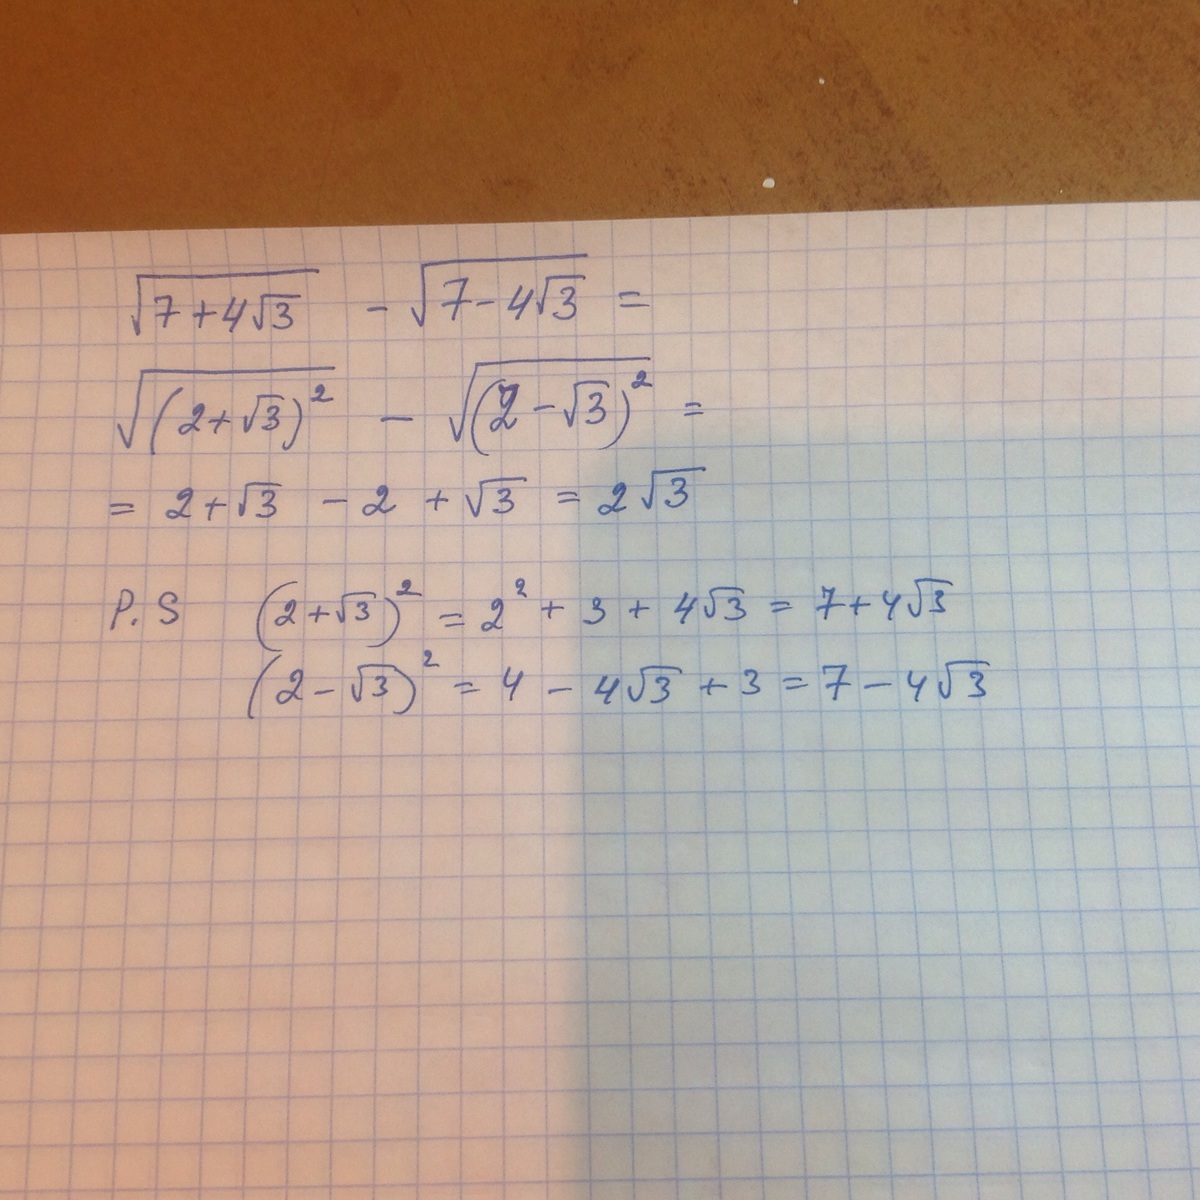 √(7+4√3) - √(7-4√3) =
√((2+√3)²) - √((2-√3)²) =
= 2+√3 - 2 + √3 = 2√3
P.S (2+√3)² = 2² + 3 + 4√3 = 7+4√3
(2-√3)² = 4 - 4√3 + 3 = 7-4√3